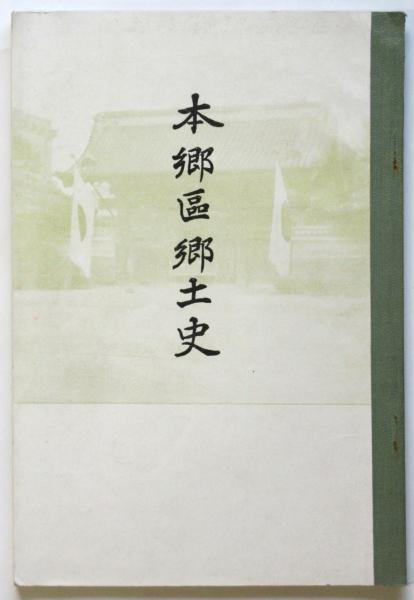 本郷區郷土史